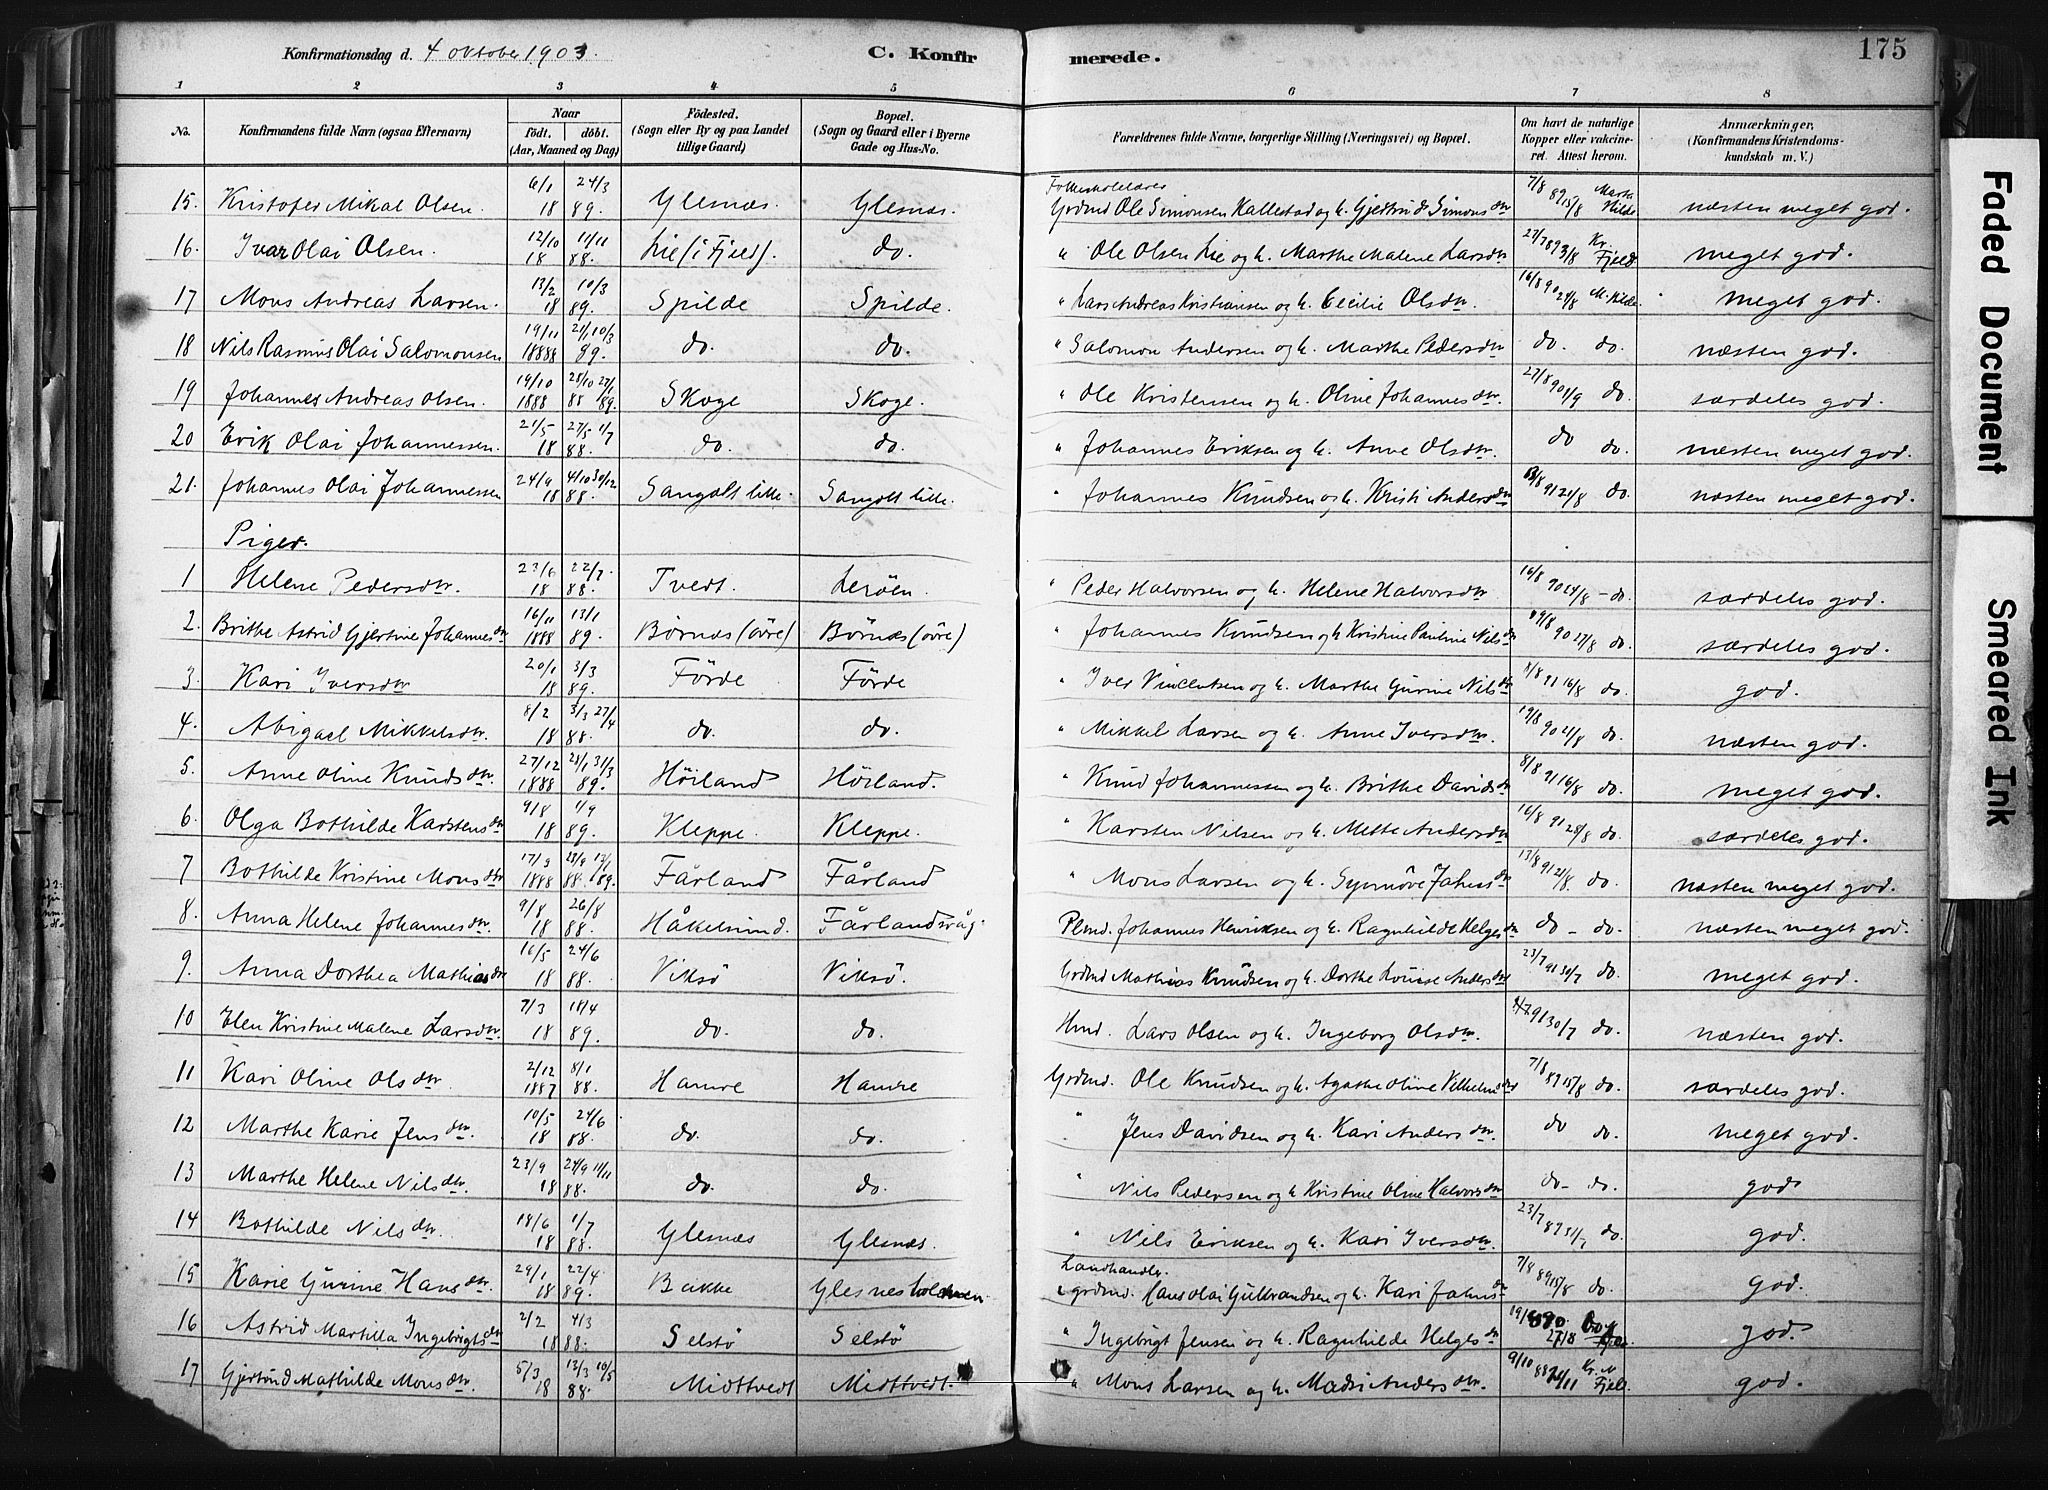 Konfirmationsdag d. 4 Oktober 1903. C. Konfirmerede. 175
1 2 3 4 5 6 7 8
No. Konfirmandens fulde Navn (ogsaa Efternavn) Naar Födt. döbt. (Aar, Maaned og Dag) Födested. (Sogn eller By og paa Landet tillige Gaard) Bopæl. (Sogn og Gaard eller i Byerne Gade og Hus-No. Forældrenes fulde Navne, borgerlige Stilling (Næringsvei) og Bopæl. Om havt de naturlige Kopper eller vakcineret. Attest herom. Anmærkninger, (Konfirmandens Kristendomskundskab m. V.)
15. Kristofer Mikal Olsen. 6/1 18 24/3 89. Glesnæs. Glesnæs. Folkeskolelærer Grdmd Ole Simonsen Kallestad og h. Gjertrud Simonsdtr 7/8 89 15/8 næsten meget god.
16. Ivar Olai Olsen. 12/10 18 11/11 88. Lie (i Fjeld). do. " Ole Olsen Lie og h. Marthe Malene Larsdtr Kr. Fjeld meget god.
17 Mons Andreas Larsen. 13/2 18 10/3 89. Spilde Spilde. " Lars Andreas Kristiansen og h. Cecilie Olsdtr. 16/8 90 24/8 M. Hilde meget god.
18 Nils Rasmus Olai Salomonsen 19/11 1888 21/1 10/3 89. do. do. " Salomon Andersen og h. Marthe Pedersdtr do. do. næsten god.
19 Johannes Andreas Olsen. 19/10 1888 28/10 88 27/1 89. Skoge Skoge. " Ole Kristensen og h. Oline Johannesdtr. 27/8 90 1/9 do. særdeles god.
20 Erik Olai Johannessen. 21/5 18 27/5 1/7 88. do. do. " Johannes Eriksen og h. Anne Olsdtr. do do. næsten meget god.
21. Johannes Olai Johannessen 24/9 18 4/10 30/12 88. Sangolt lille. Sangolt lille. " Johannes Knudsen og h. Kristi Andersdtr 91 21/8 do. næsten meget god.
Piger.
1 Helene Pedersdtr. 23/6 18 22/7 88. Tvedt. Leröen. " Peder Halvorsen og h. Helene Halvorsdtr 16/8 90 24/8 - do. særdeles god.
2. Brithe Astrid Gjertine Johannesdtr 16/11 1888 13/1 89. Börnæs (övre) Börnæs (övre) " Johannes Knudsen og h Kristine Pauline Nilsdtr 90 27/8 do. særdeles god.
3. Kari Iversdtr 20/1 18 3/3 89. Förde Förde " Iver Vincentsen og h. Marthe Gurine Nilsdtr 91 16/8 do. god.
4. Abigael Mikkelsdtr. 8/2 18 3/3 27/4 88. do. do. " Mikkel Larsen og h. Anne Iversdtr. 19/8 90 21/8 do. næsten god.
5. Anne Oline Knudsdtr. 27/12 1888 28/1 31/3 89. Höiland Höiland. " Knud Johannessen og h. Brithe Davidsdtr 8/8 91 16/8 do. meget god.
6. Olga Bothilde Karstensdtr 9/8 18 1/9 89. Kleppe. Kleppe. " Karsten Nilsen og h. Mette Andersdtr 16/8 91 28/8 do. særdeles god.
7 Bothilde Kristine Monsdtr 17/9 1888 23/9 88. 13/1 89. Fårland Fårland " Mons Larsen og h. Synnöve Jahnsdtr 13/8 91 21/8. do. næsten meget god.
8. Anna Helene Johannesdtr. 9/8 18 26/8 88. Håkelsund. Fårlandsvåg. Plmd. Johannes Henriksen og h. Ragnhilde Helgesdtr do - do. næsten meget god.
9. Anna Dorthea Mathiasdtr 16/5 18 24/6 88. Viksö Viksö. Grdmd Mathias Knudsen og h. Dorthe Louise Andersdtr 23/7 91 30/7 do. meget god.
10 Elen Kristine Malene Larsdtr. 7/3 18 18/4 89. do. do. Hmd. Lars Olsen og h. Ingeborg Olsdtr. 91 30/7 do. næsten god.
11 Kari Oline Olsdtr. 2/12 1887 8/1 88. Hamre Hamre Grdmd. Ole Knudsen og h. Agathe Oline Vilhelmsdtr 7/8 89 15/8 do. særdeles god.
12 Marthe Karie Jensdtr. 10/5 18 24/6 88. do. do. " Jens Davidsen og h. Kari Andersdtr. do do. meget god.
13 Marthe Helene Nilsdtr. 23/9 18 29/9 11/11 88. do. do. " Nils Pedersen og h Kristine Oline Halvorsdtr do- do. god
14 Bothilde Nilsdtr. 18/6 18 1/7 88. Glesnæs Glesnæs. " Nils Eriksen og h. Kari Iversdtr. 23/7 89 31/7 do god.
15 Karie Gurine Hansdtr. 29/1 18 22/4 89. Bakke Glesnesholmen. Landhandler. & grdmd. Hans Olai Gulbrandsen og h. Kari Jahnsdtr 7/8 89 15/8 do. god.
16 Astrid Martilla Ingebrigtsdtr 2/2 18 4/3 88. Selstö Selstö " Ingebrigt Jensen og h. Ragnhilde Helgesdtr 27/8 god.
17 Gjertrud Mathilde Monsdtr. 5/3 18 13/3 10/5 88. Midttvedt Midttvedt. " Mons Larsen og h. Madsi Andersdtr. 9/10 88 Kr. N. Fjell. god.
Faded Document
Smeared Ink